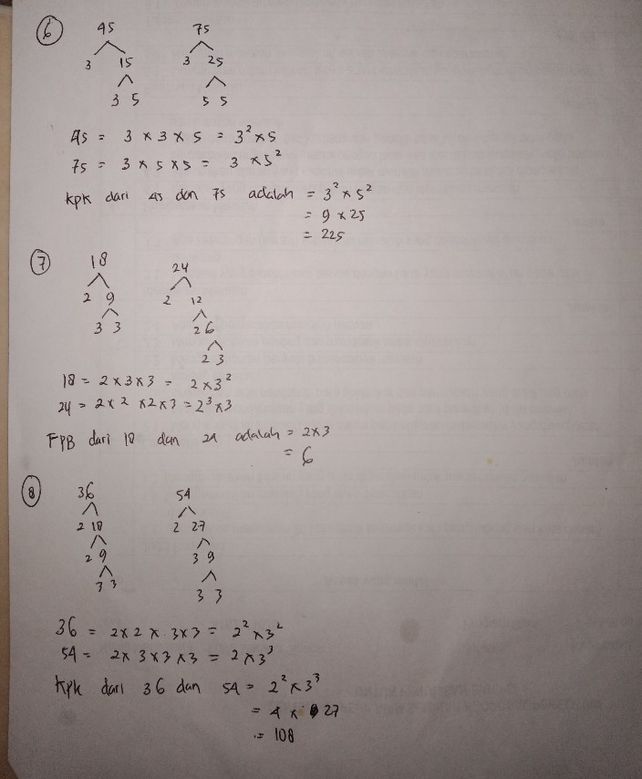 6
45 75
3 15 3 25
3 5 5 5
45 = 3 × 3 × 5 = 3² × 5
75 = 3 × 5 × 5 = 3 × 5²
KPK dari 45 dan 75 adalah = 3² × 5²
= 9 × 25
= 225
7
18 24
2 9 2 12
3 3 2 6
2 3
18 = 2 × 3 × 3 = 2 × 3²
24 = 2 × 2 × 2 × 3 = 2³ × 3
FPB dari 18 dan 24 adalah = 2 × 3
= 6
8
36 54
2 18 2 27
2 9 3 9
3 3 3 3
36 = 2 × 2 × 3 × 3 = 2² × 3²
54 = 2 × 3 × 3 × 3 = 2 × 3³
KPK dari 36 dan 54 = 2² × 3³
= 4 × 27
= 108